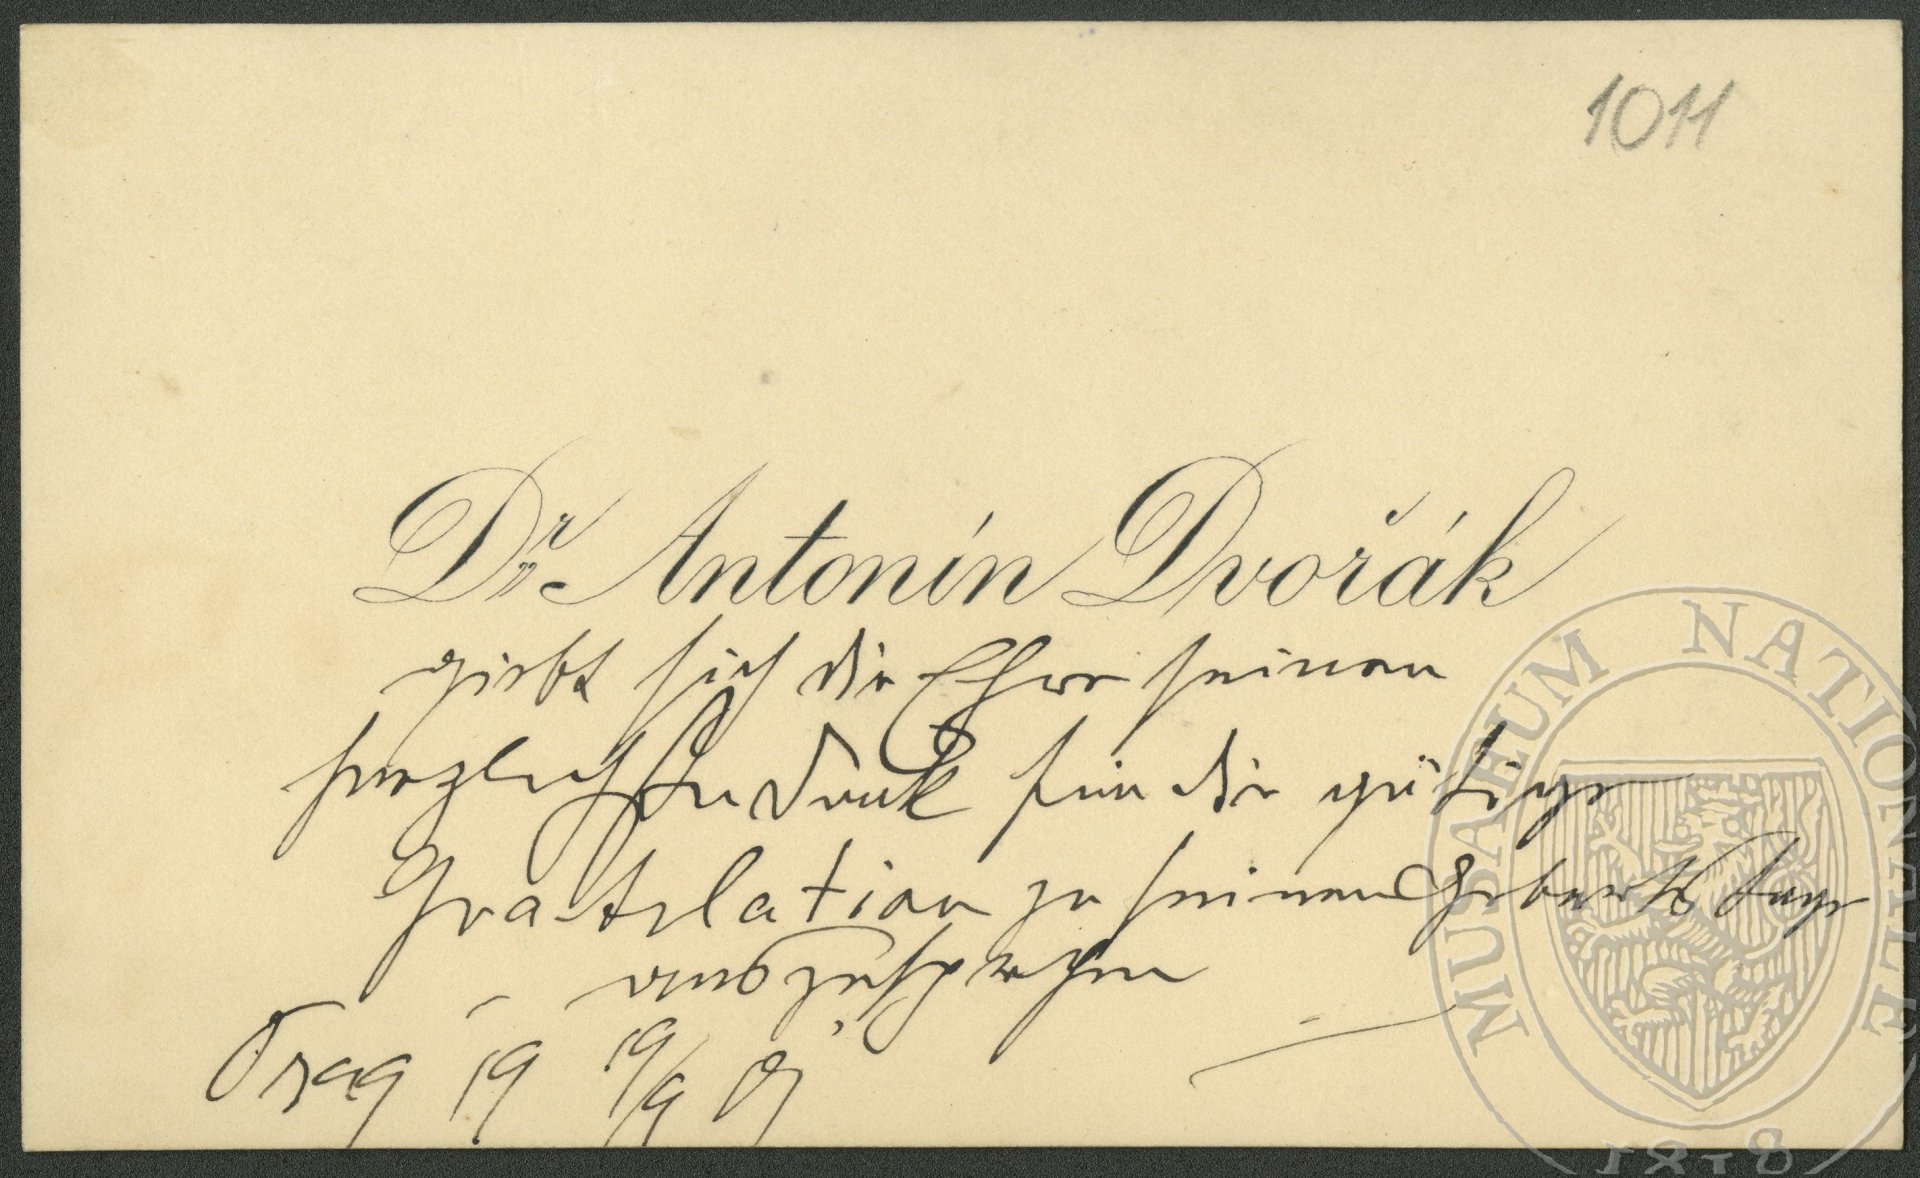 1011
Dr. Antonín Dvořák
giebt sich die Ehre seinen
herzlichsten Dank für die gütige
Gratulation zu seinem Geburtstage
auszusprechen
Prag 19 19/9 01
MUSAEUM NATIONALE
1818